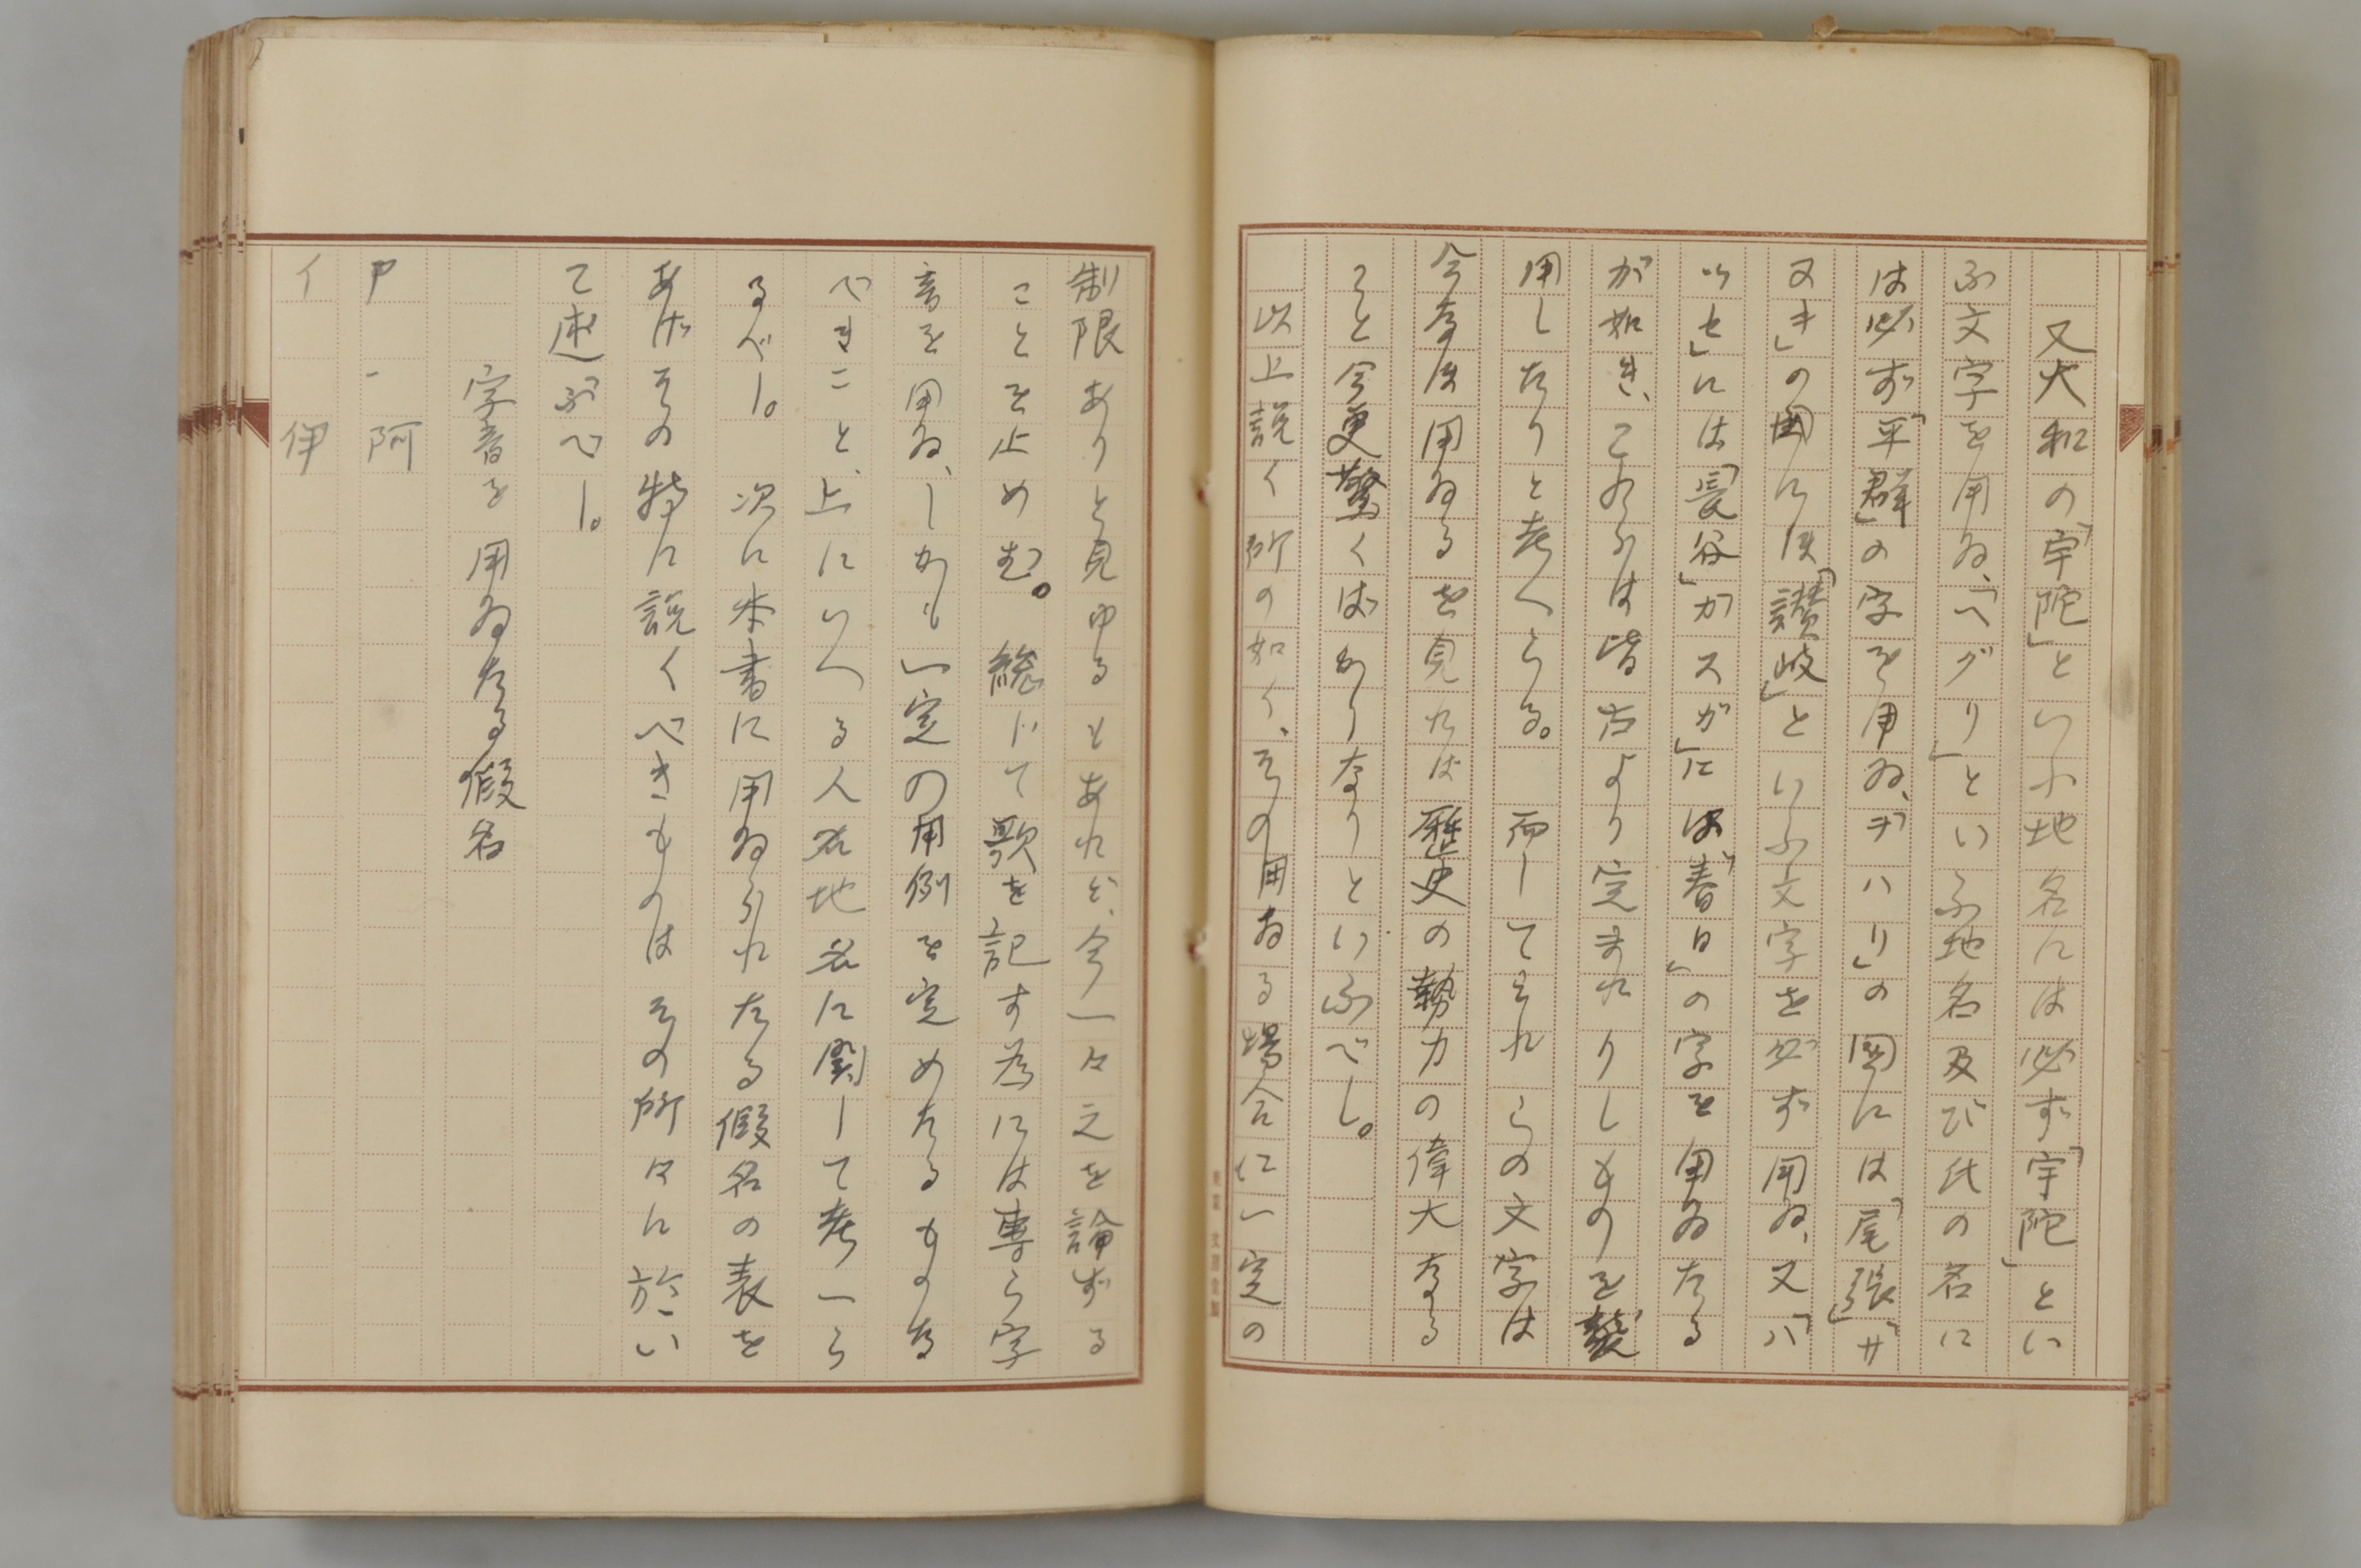 又大和の「宇陀」といふ地名には必ず「宇陀」とい
ふ文字を用ゐ、「ヘグリ」といふ地名及び氏の名に
は必ず「平群」の字を用ゐ、「ヲハリ」の國には「尾張」「サ
ヌキ」の國には「讃岐」といふ文字を必ず用ゐ、又「ハ
ツセ」には「長谷」「カスガ」には「春日」の字を用ゐたる
が如き、これらは皆古より定まれりしものを襲
用したりと考へらる。而してそれらの文字は
今なほ用ゐるを見れば歴史の勢力の偉大なる
こと今更驚くばかりなりといふべし。
以上説く所の如く、その用ゐる場合に一定の
制限ありと見ゆるもあれど、今一々之を論ずる
ことを止めむ。總じて歌を記す為には専ら字
音を用ゐ、しかも一定の用例を定めたるものな
べきこと、上にいへる人名地名に関して考へら
るべし。次に本書に用ゐられたる假名の表を
あげその特に説くべきものはその所々に於い
て述ぶべし。
字音を用ゐたる假名
ア - 阿
イ 伊